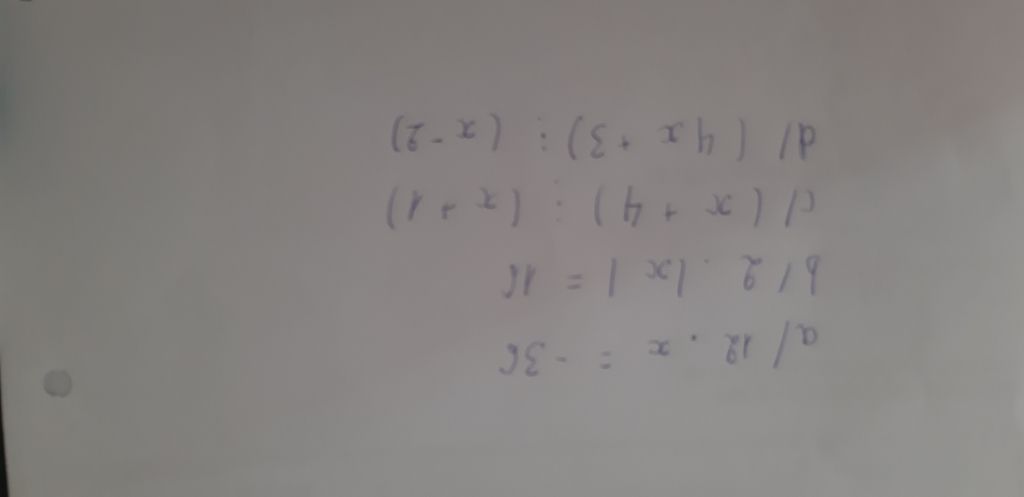 a/ 12 . x = -36
b/ 2 . |x| = 16
c/ (x + 4) : (x + 1)
d/ (4x + 3) : (x - 2)